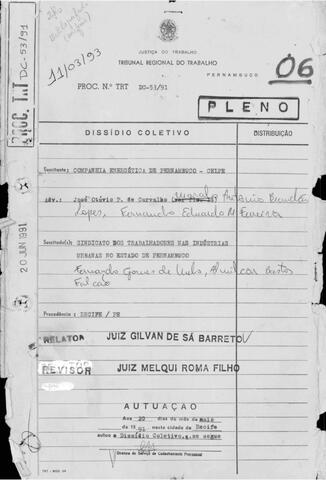 PROC. TRT DC-53/91
11/03/93
JUSTIÇA DO TRABALHO
TRIBUNAL REGIONAL DO TRABALHO
PERNAMBUCO
06
PROC. N.º TRT DC-53/91
PLENO
DISSÍDIO COLETIVO
DISTRIBUIÇÃO
Suscitante: COMPANHIA ENERGÉTICA DE PERNAMBUCO - CELPE
Adv.: José Otávio P. de Carvalho Antônio Brandão
Lopes, Fernando Eduardo M. Ferreira
Suscitado(s): SINDICATO DOS TRABALHADORES NAS INDÚSTRIAS
URBANAS NO ESTADO DE PERNAMBUCO
Fernando Gomes de Melo, Amilcar Bastos
Falcão
20 JUN 1991
Procedência: RECIFE / PE
RELATOR JUIZ GILVAN DE SÁ BARRETO
REVISOR JUIZ MELQUI ROMA FILHO
AUTUAÇÃO
Aos 20 dias do mês de maio
de 1991 nesta cidade de Recife
autuo o Dissídio Coletivo,q.se segue
Diretora do Serviço de Cadastramento Processual